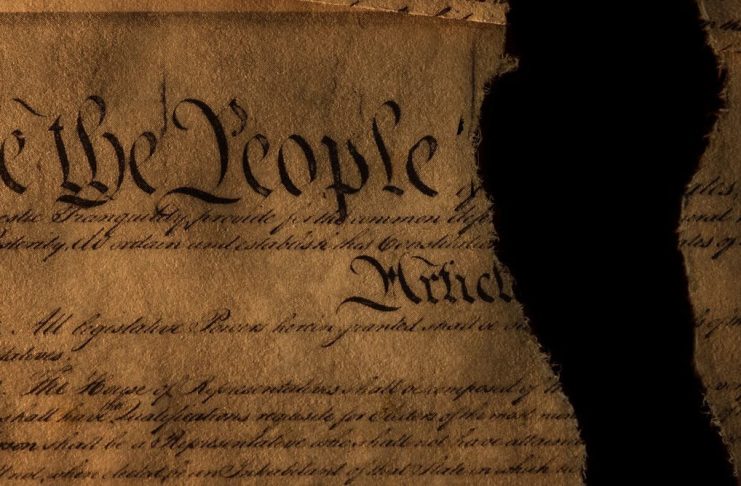 e the People
Tranquility, provide for the common
ordain and establish this Constitution
Article
All legislative Powers herein granted shall be
tatives.
The House of Representatives shall be composed of
shall have the Qualifications requisite for Electors of the most
shall be a Representative who shall not have attained
not, when elected, be an Inhabitant of that State in which